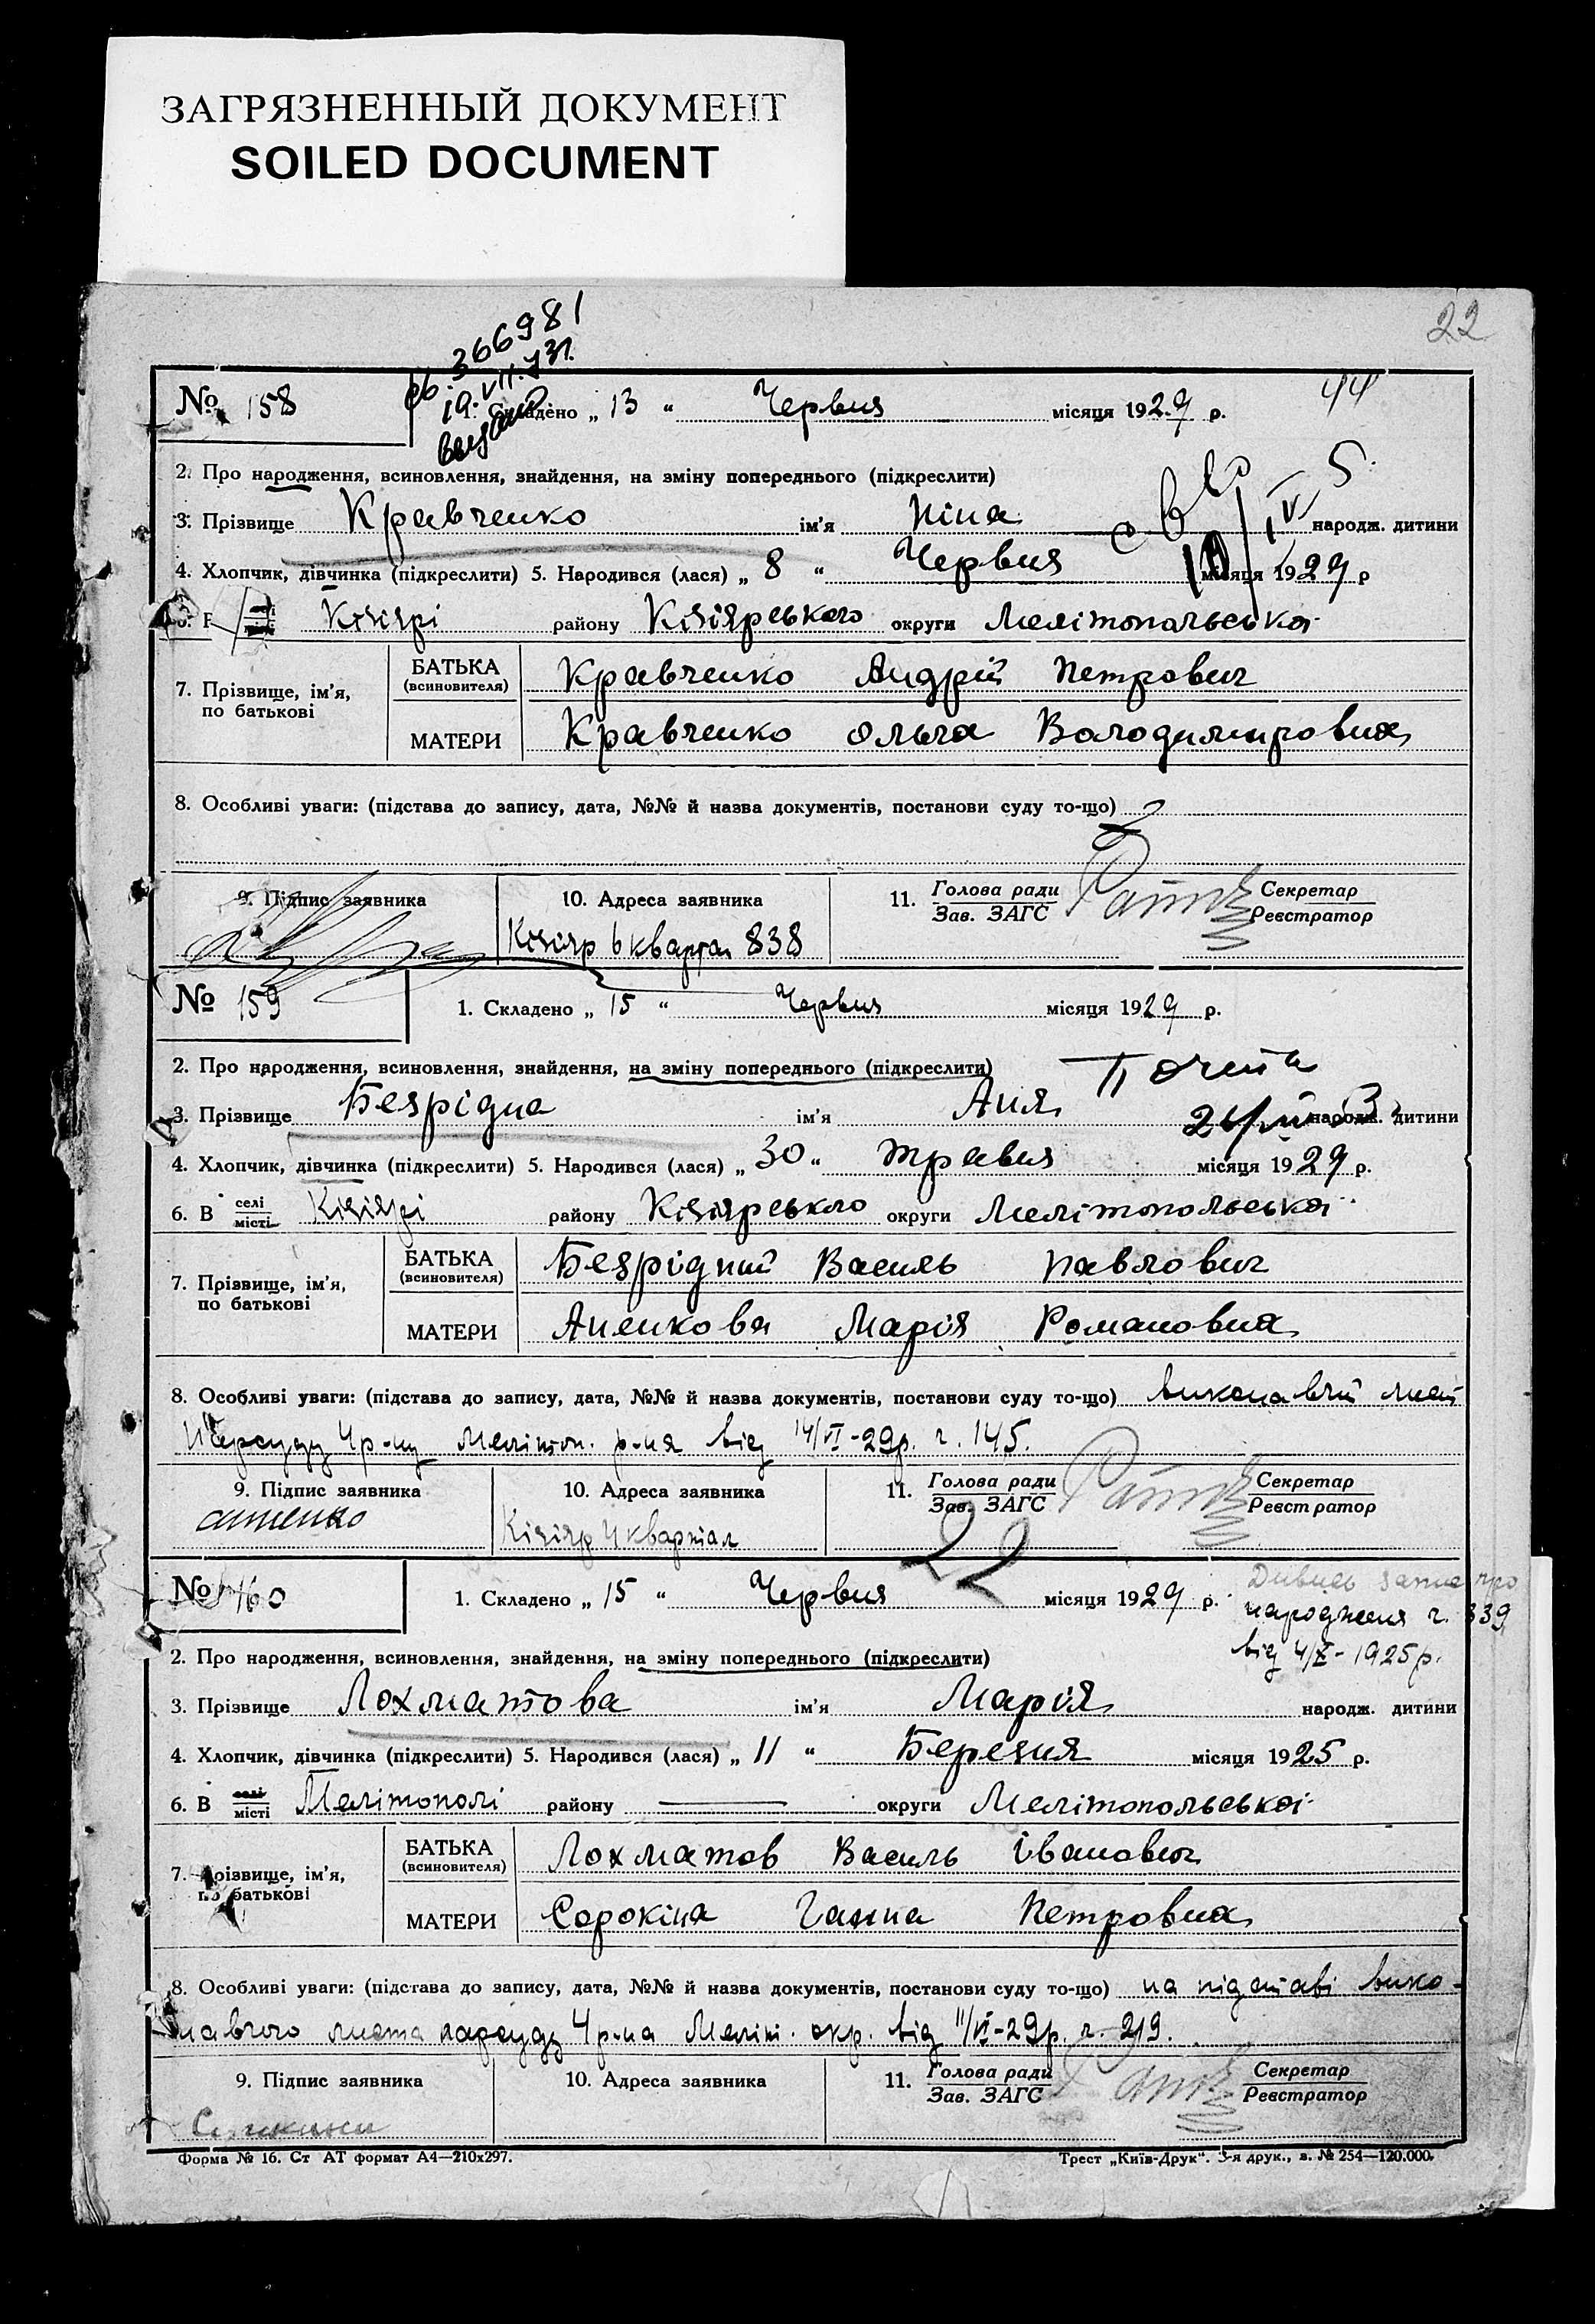 ЗАГРЯЗНЕННЫЙ ДОКУМЕНТ
SOILED DOCUMENT
22
44
366981
№ 158
1. Складено „ 13 “ Червня місяця 1929 р.
2. Про народження, всиновлення, знайдення, на зміну попереднього (підкреслити)
3. Прізвище Кравченко ім'я Ніна народж. дитини
4. Хлопчик, дівчинка (підкреслити) 5. Народився (лася) „ 8 “ Червня місяця 1929 р
Кізіярі району Кізіярського округи Мелітопольської
7. Прізвище, ім'я, по батькові
БАТЬКА (всиновителя) Кравченко Андрій Петрович
МАТЕРИ Кравченко Ольга Володимировна
8. Особливі уваги: (підстава до запису, дата, №№ й назва документів, постанови суду то-що)
9. Підпис заявника 10. Адреса заявника 11. Голова ради Зав. ЗАГС Секретар Реєстратор
Кізіяр 6 квартал 838
№ 159
1. Складено „ 15 “ Червня місяця 1929 р.
2. Про народження, всиновлення, знайдення, на зміну попереднього (підкреслити)
3. Прізвище Безрідна ім'я Аня народж. дитини
4. Хлопчик, дівчинка (підкреслити) 5. Народився (лася) „ 30 “ травня місяця 1929 р.
6. В селі місті Кізіярі району Кізіярського округи Мелітопольської
7. Прізвище, ім'я, по батькові
БАТЬКА (всиновителя) Безрідний Василь Павлович
МАТЕРИ Аненкова Марія Романовна
8. Особливі уваги: (підстава до запису, дата, №№ й назва документів, постанови суду то-що) виконавчий лист
Нарсуду 4 р-ну Меліт. р-на від 14/VI-29р. ч. 145.
9. Підпис заявника 10. Адреса заявника 11. Голова ради Зав. ЗАГС Секретар Реєстратор
Кізіяр 4 квартал
22
№ 160
1. Складено „ 15 “ Червня місяця 1929 р.
Дивись запис про
народження ч. 339
від 4/X-1925р.
2. Про народження, всиновлення, знайдення, на зміну попереднього (підкреслити)
3. Прізвище Лохматова ім'я Марія народж. дитини
4. Хлопчик, дівчинка (підкреслити) 5. Народився (лася) „ 11 “ Березня місяця 1925 р.
6. В селі місті Мелітополі району — округи Мелітопольської
7. Прізвище, ім'я, по батькові
БАТЬКА (всиновителя) Лохматов Василь Іванович
МАТЕРИ Сорокіна Ганна Петровна
8. Особливі уваги: (підстава до запису, дата, №№ й назва документів, постанови суду то-що) на підставі вико-
навчого листа нарсуду 4 р-на Меліт. окр. від 11/VI-29р. ч. 219.
9. Підпис заявника 10. Адреса заявника 11. Голова ради Зав. ЗАГС Секретар Реєстратор
Форма № 16. Ст АТ формат А4—210х297. Трест „Київ-Друк“. 3-я друк., з. № 254—120.000.